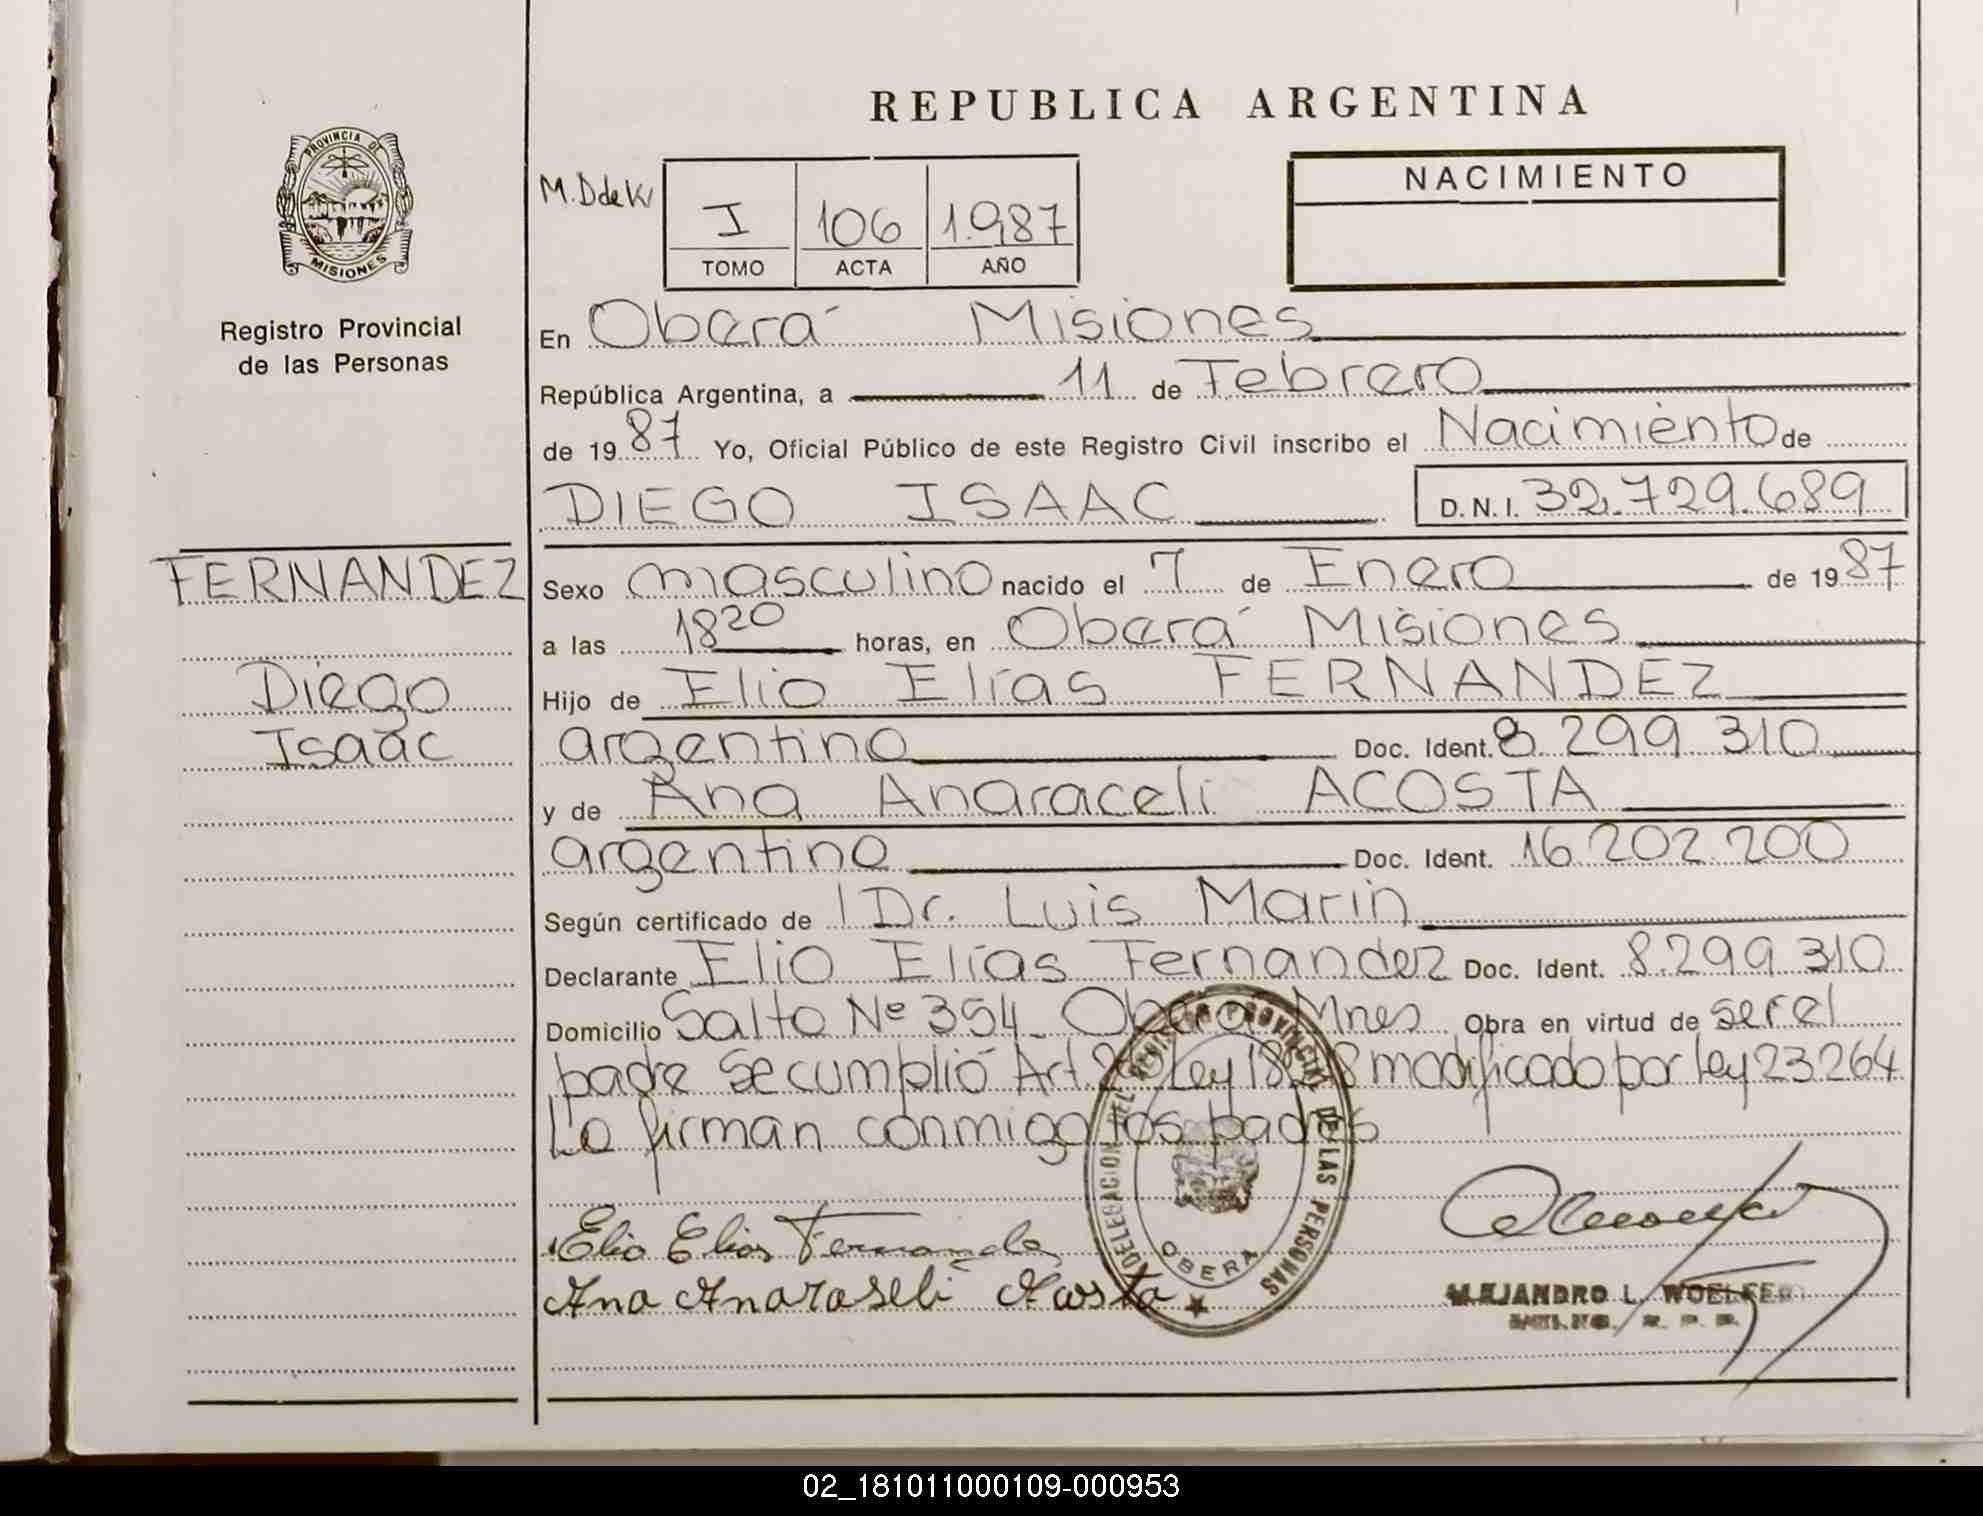 REPUBLICA ARGENTINA
PROVINCIA DE
MISIONES
Registro Provincial
de las Personas
M.DdeK
I 106 1.987
TOMO ACTA AÑO
NACIMIENTO
En Oberá Misiones
República Argentina, a 11 de Febrero
de 1987 Yo, Oficial Público de este Registro Civil inscribo el Nacimiento de
DIEGO ISAAC D.N.I. 32.729.689
FERNANDEZ
Diego
Isaac
Sexo masculino nacido el 7 de Enero de 1987
a las 1820 horas, en Oberá Misiones
Hijo de Elio Elías FERNANDEZ
argentino Doc. Ident. 8.299.310
y de Ana Anaraceli ACOSTA
argentina Doc. Ident. 16.202.200
Según certificado de Dr. Luis Marin
Declarante Elio Elías Fernandez Doc. Ident. 8.299.310
Domicilio Salto Nº 354 Oberá Mnes Obra en virtud de ser el
padre se cumplió Art. Ley modificado por ley 23264
Lo firman conmigo los padres
Elio Elias Fernandez
Ana Anaraseli Acosta
DELEGACION DEL REGISTRO PROVINCIAL DE LAS PERSONAS
OBERA
ALEJANDRO L. WOELFERT
02_181011000109-000953